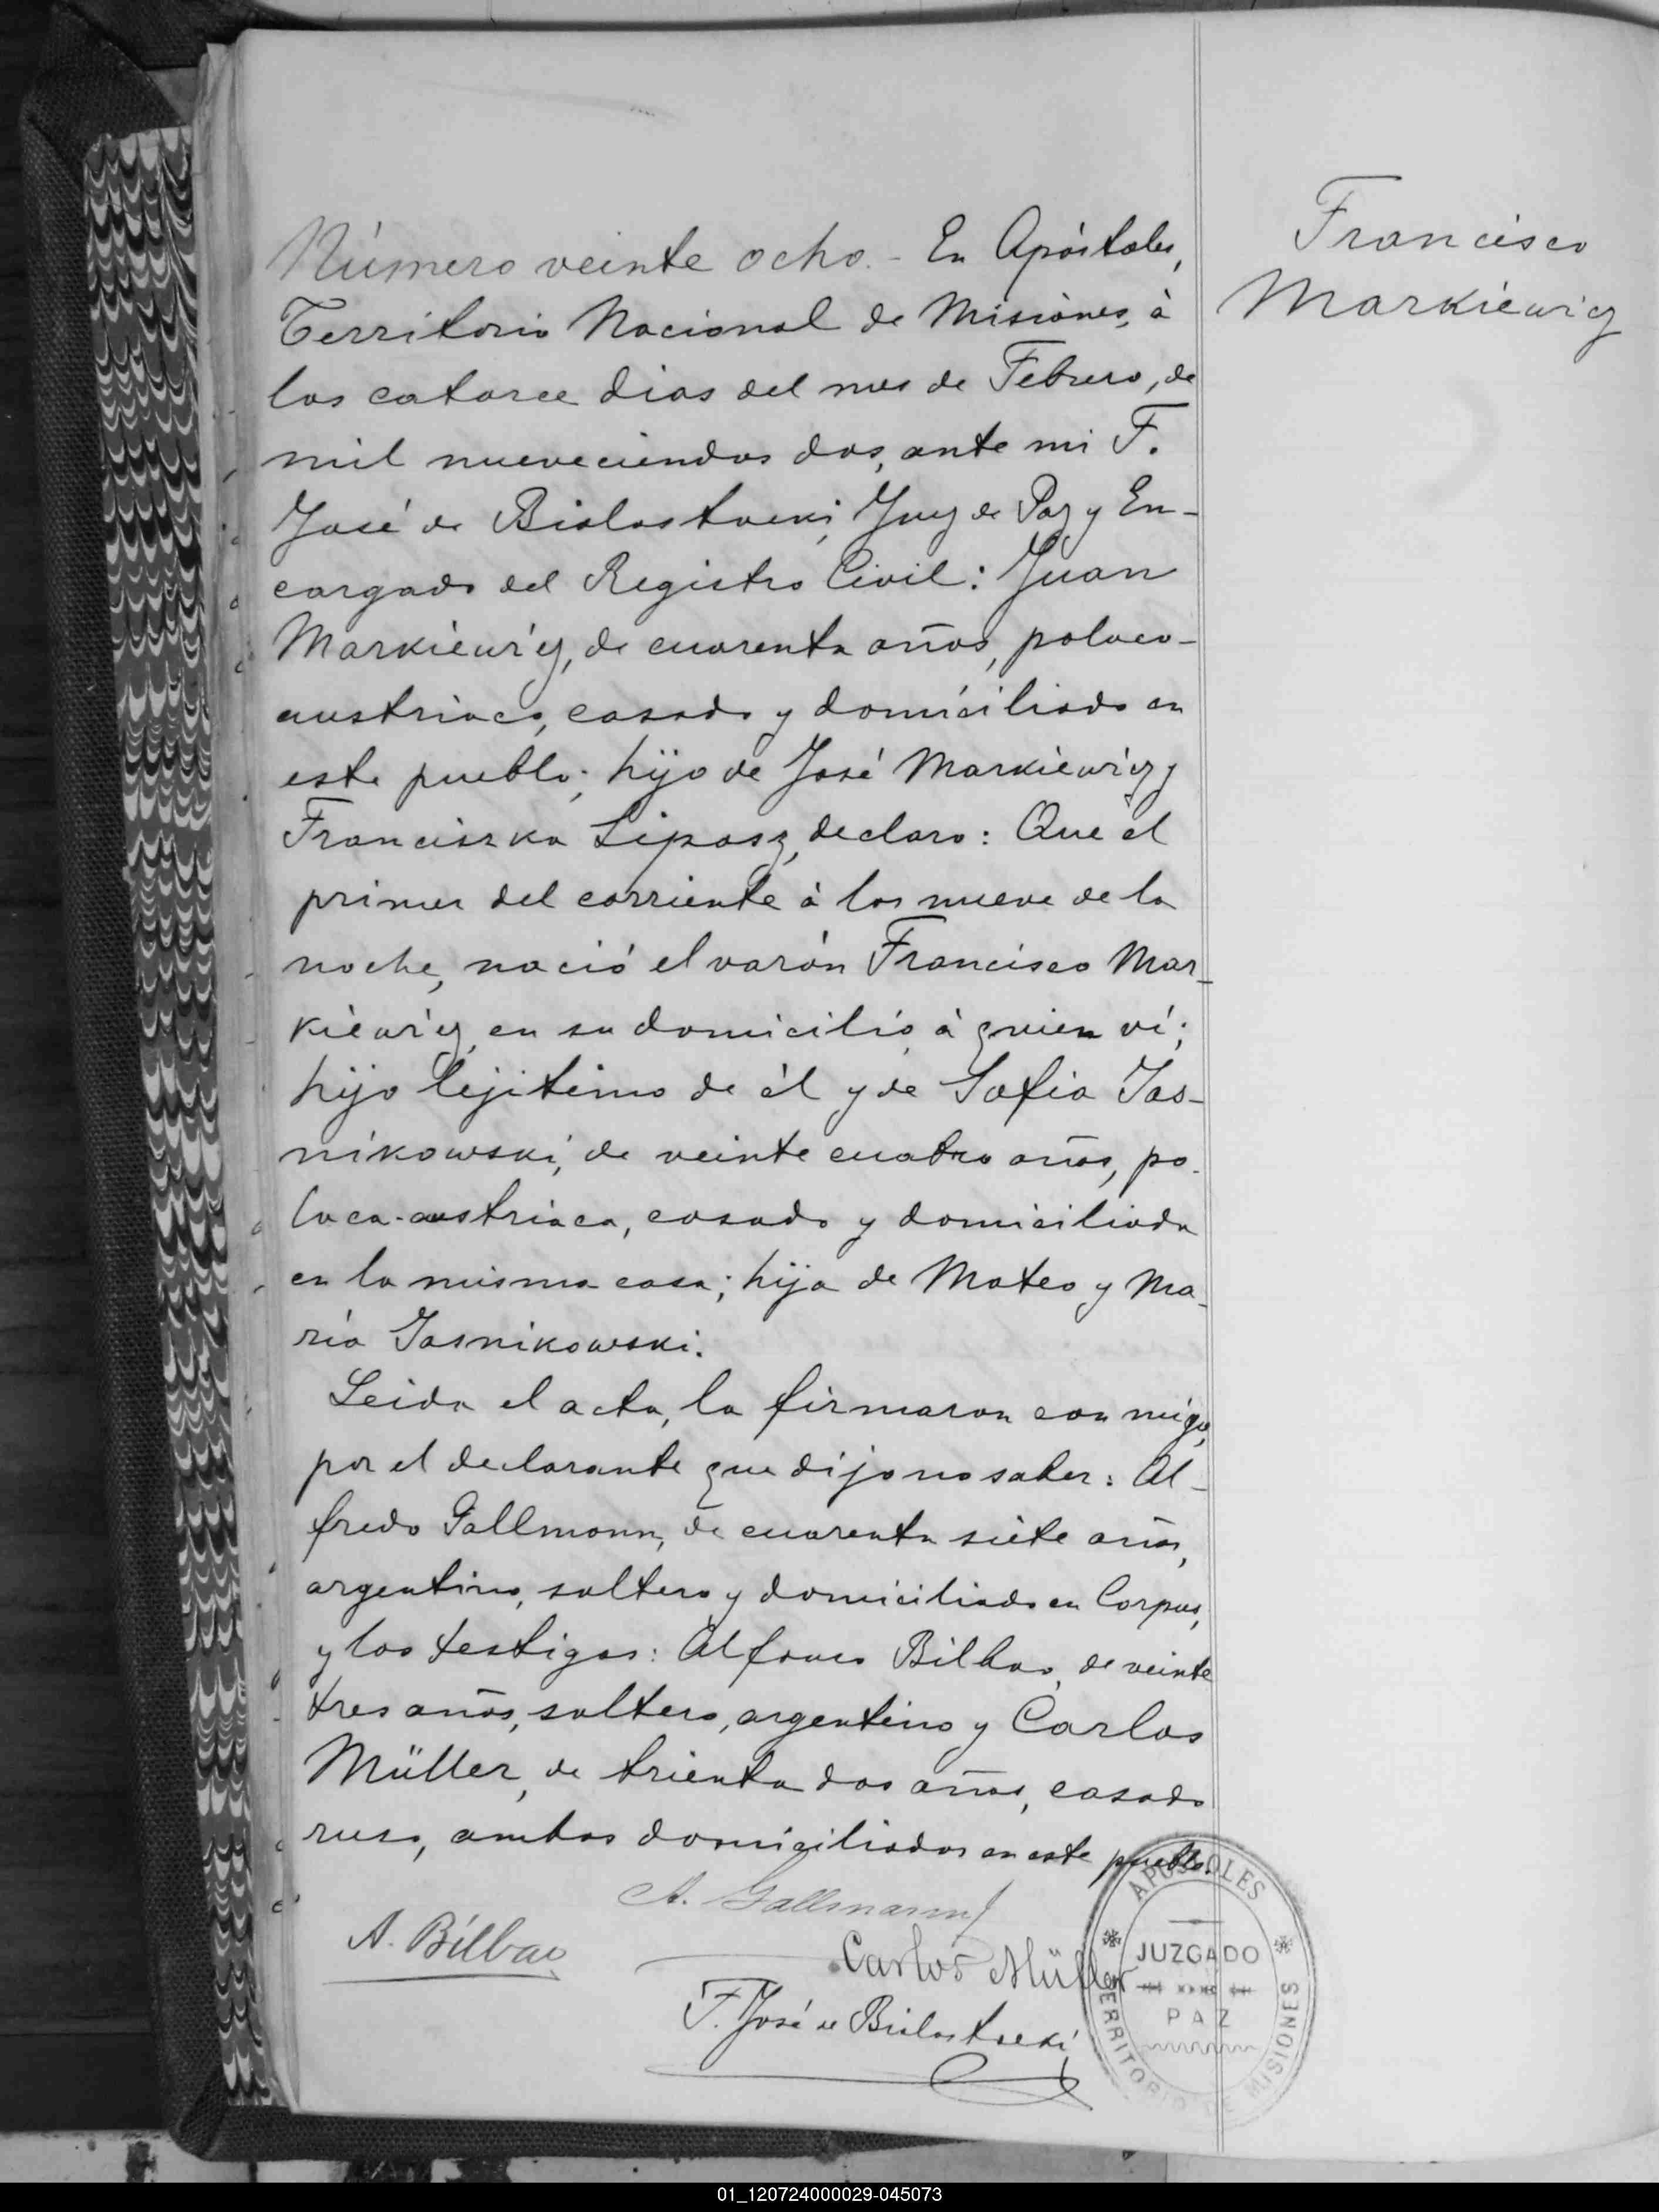 Francisco
Markiewicz
Número veinte ocho.- En Apóstoles,
Territorio Nacional de Misiones, à
los catorce dias del mes de Febrero, de
mil nueveciendos dos, ante mi F.
José de Bialostocki, Juez de Paz y En-
cargado del Registro Civil: Juan
Markiewicz, de cuarenta años, polaco-
austriaco, casado y domiciliado en
este pueblo; hijo de José Markiewicz y
Franciszka Lipasz, declaro: Que el
primer del corriente à las nueve de la
noche, nació el varón Francisco Mar-
kiewicz, en su domicilio, à quien ví;
hijo lejitimo de él y de Sofia Jas-
nikowski, de veinte cuatro años, po-
laca-austriaca, casado y domiciliada
en la misma casa; hija de Mateo y Ma-
ría Jasnikowski.
Leida el acta, la firmaron con migo,
por el declarante que dijo no saber: Al-
fredo Gallmann, de cuarenta siete años,
argentino, soltero y domiciliado en Corpus,
y los testigos: Alfonso Bilbao, de veinte
tres años, soltero, argentino y Carlos
Müller, de trienta dos años, casado
ruso, ambos domiciliados en este pueblo.
A. Gallmann
A. Bilbao
Carlos Müller
F. José de Bialostocki
APOSTOLES
JUZGADO
PAZ
TERRITORIO DE MISIONES
01_120724000029-045073